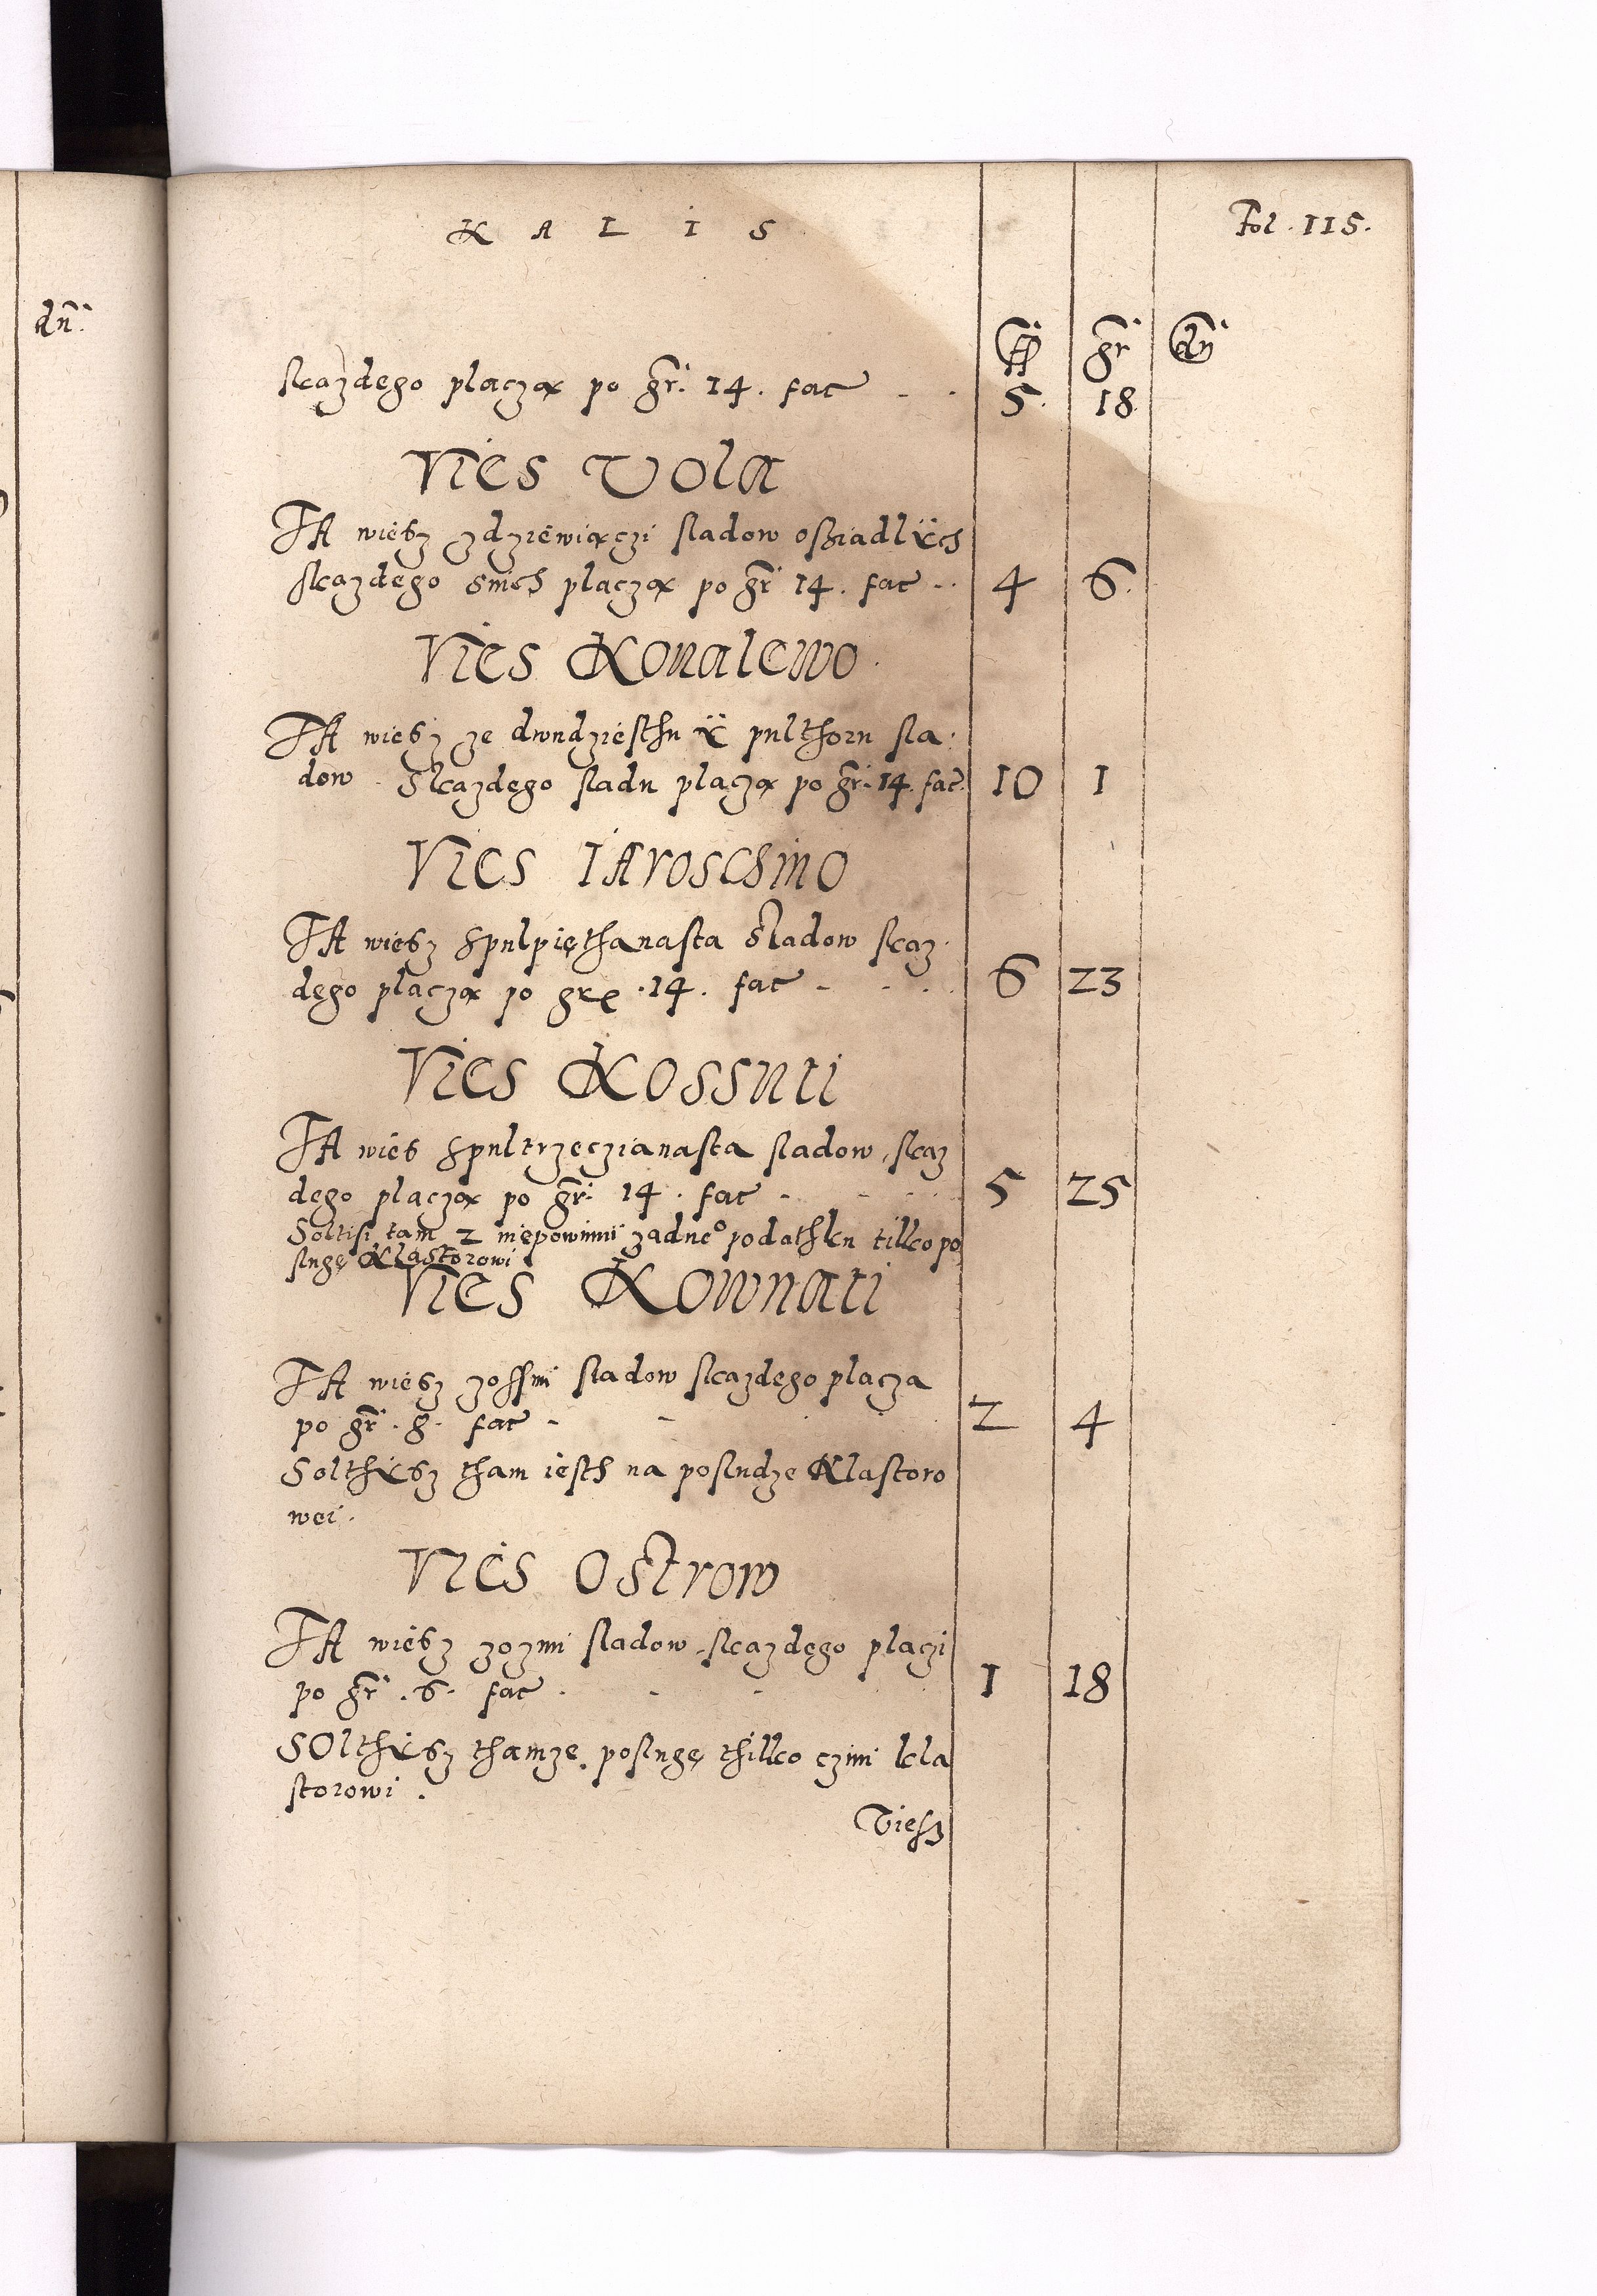 dn̄:
K A L I S
Fol. 115.
ff gr dn
skazdego placzą po gr: 14. fac 5. 18.
Vies Vola
TA wiesz zdziewiączi sladow osziadlÿch
skazdego snich placzą po gr 14. fac 4 6.
Vies Konalewo.
TA wiesz ze dwudziesthu ÿ pulthoru sla
dow Skazdego sladu placzą po gr: 14. fac. 10 1
Vies IAroschino
TA wiesz spulpięthanasta sladow skaz
dego placzą po gr .14. fac 6 23
Vies Kossuti
TA wies spultrzeczianasta sladow skaz
dego placzą po gr: 14. fac 5 25
Soltisi tam 2 niepowinni zadne° podathku tilko po
slugę Klastorowi
Vies Kownati
TA wiesz zossmi sladow skazdego placza
po gr. 8. fac 2 4
Solthÿsz tham iesth na posludze Klastoro
wei.
Vies Ostrow
TA wiesz zozmi sladow skazdego placzi
po gr .6. fac 1 18
SOlthÿsz thamze poslugę thilko czini kla
storowi.
Viesz